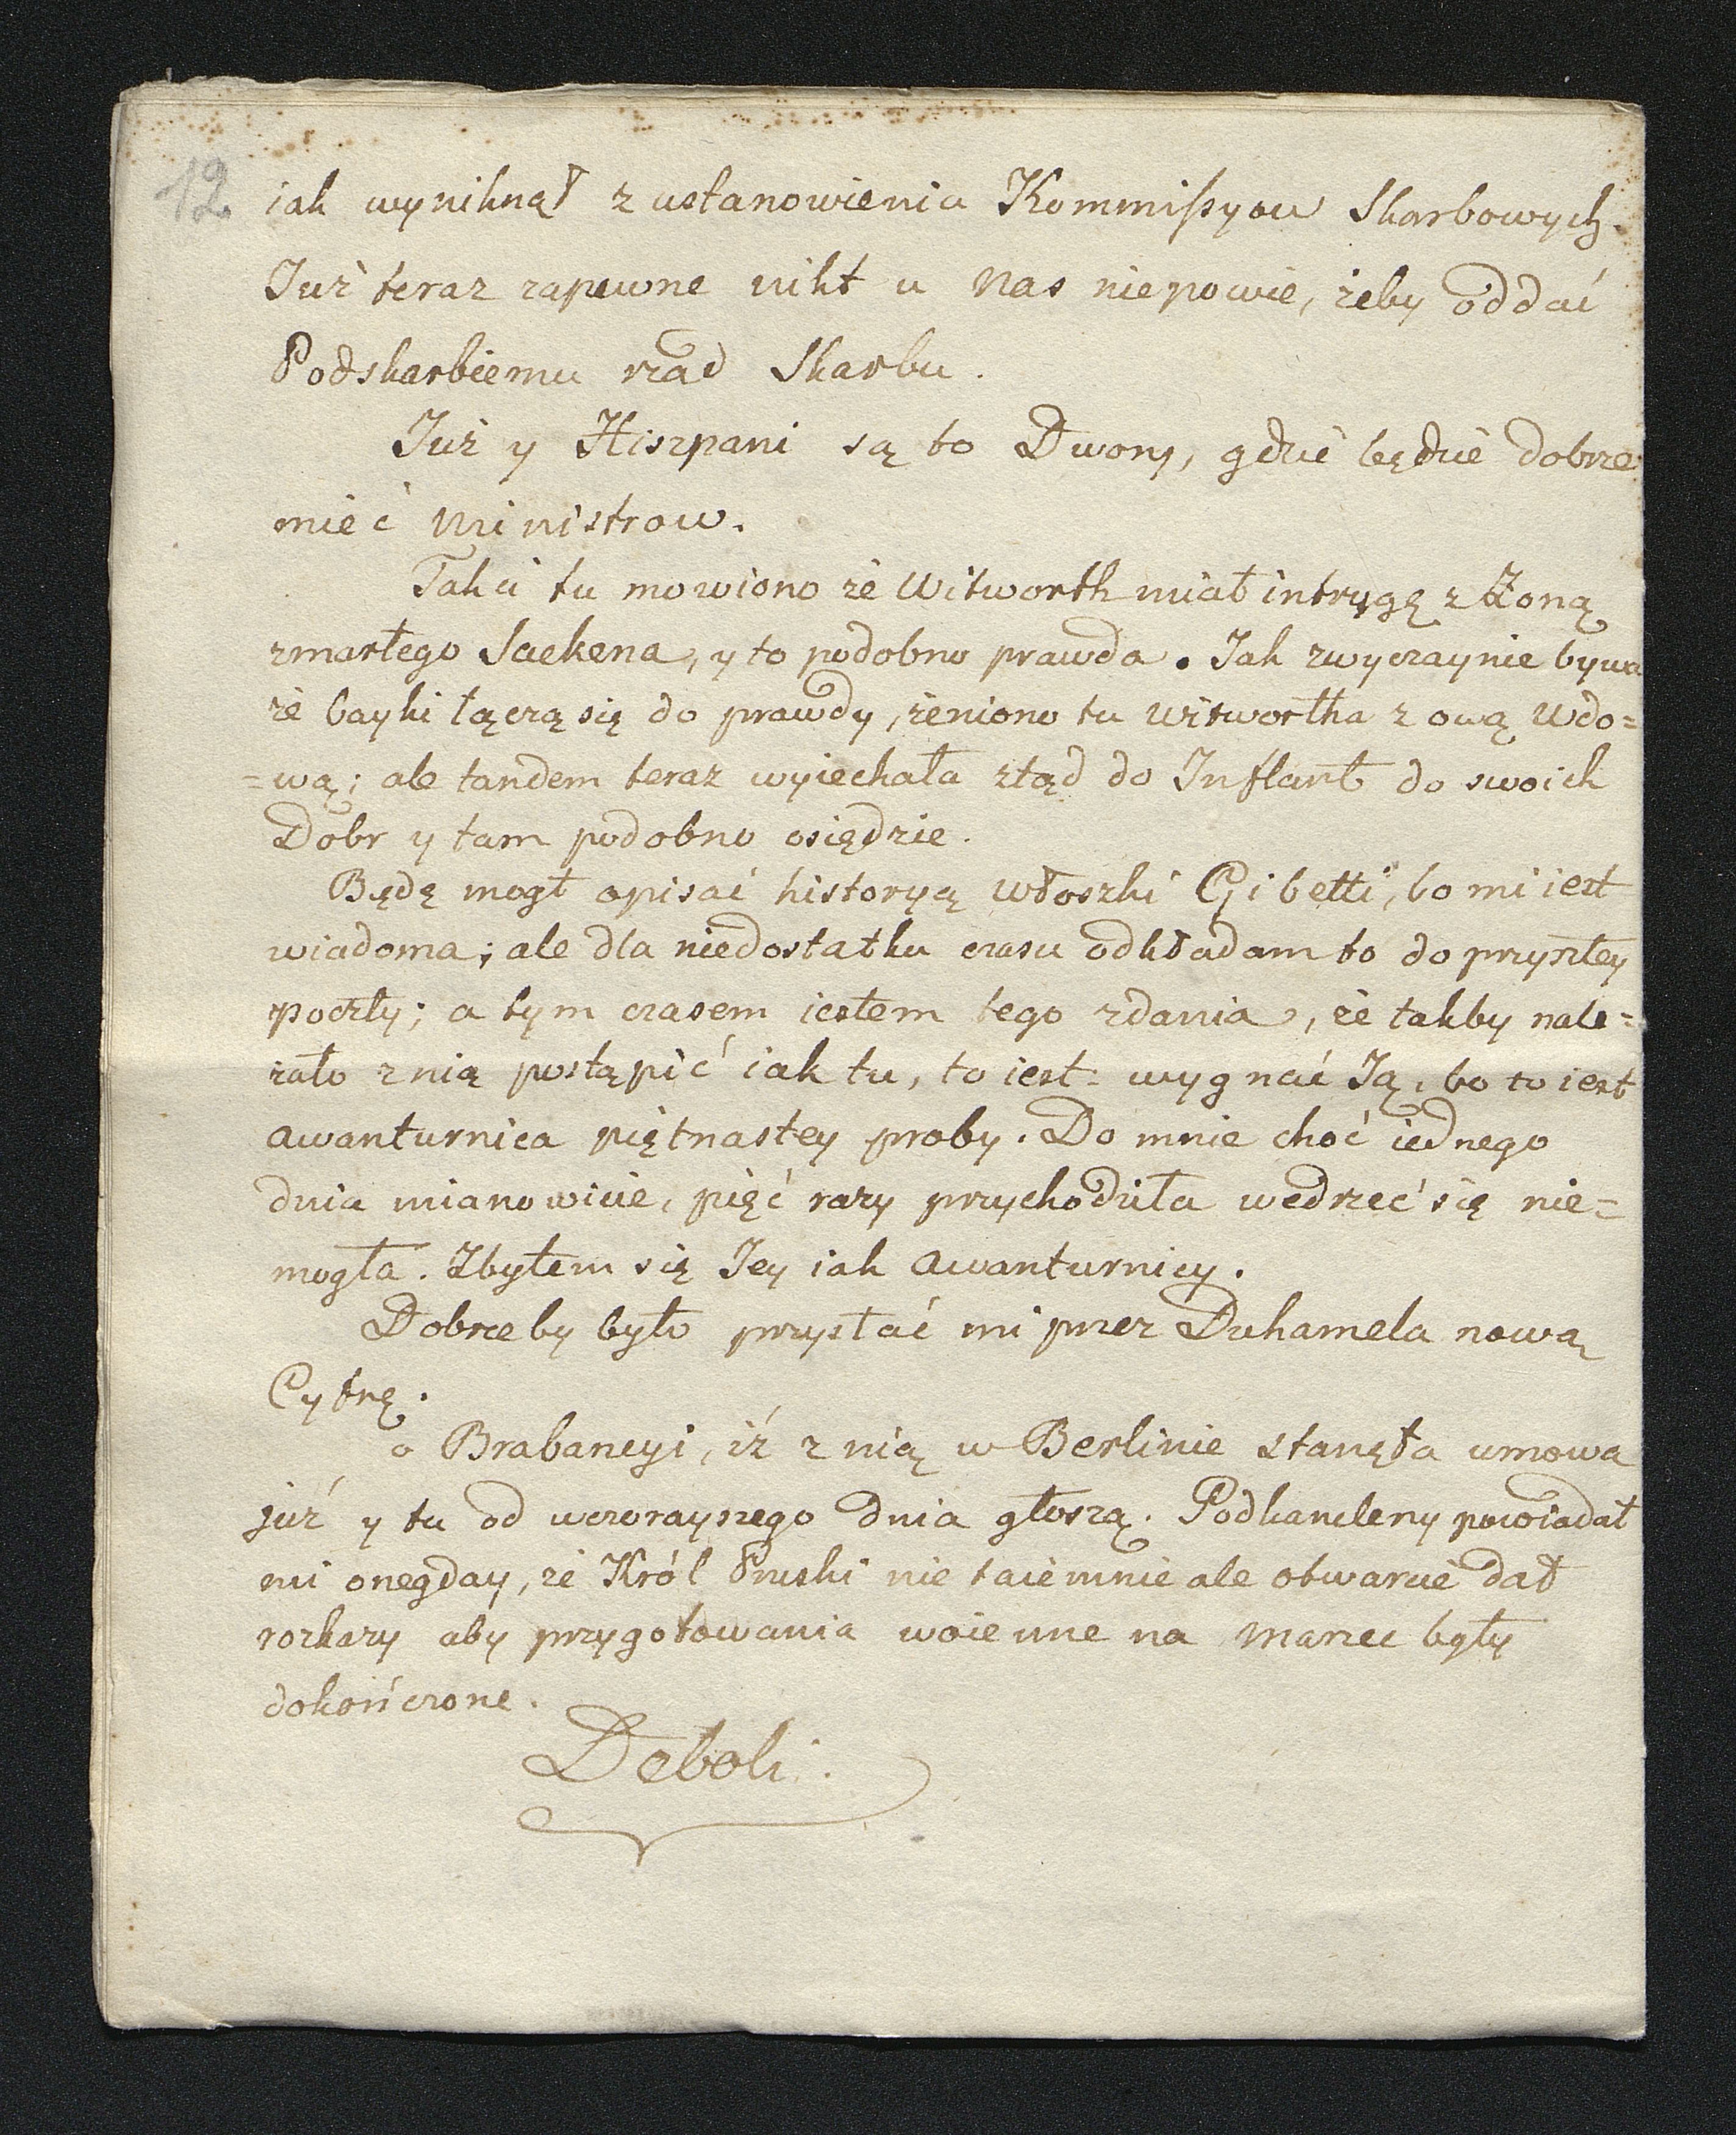 12
iak wyniknął z ustanowienia Kommissyow Skarbowych.
Już teraz zapewne nikt u nas niepowie, żeby oddać
Podskarbiemu rząd Skarbu.
Już y Hiszpani są to Dwory, gdzie będzie dobrze
mieć Ministrow.
Taką tu mowiono że Witworth miał intrygę z Żoną
zmarłego Sackena, y to podobno prawda. Jak zwyczaynie bywa
że bayki łączą się do prawdy, żeniono tu Witwortha z ową Wdo=
=wą; ale tandem teraz wyiechała ztąd do Inflant do swoich
Dobr y tam podobno osiędzie.
Będę mogł opisać historyą włoszki Gibetti, bo mi iest
wiadoma; ale dla niedostatku czasu odkładam to do przyszłey
poczty; a tym czasem iestem tego zdania, że takby nale=
żało z nią postąpić iak tu, to iest: wygnać Ją, bo to iest
awanturnica piętnastey proby. Do mnie choć iednego
dnia mianowicie, pięć razy przychodziła wedrzeć się nie=
mogła. Zbyłem się Jey iak awanturnicy.
Dobrze by było przysłać mi przez Duhamela nową
Cyfrę.
o Brabancyi, iż z nią w Berlinie stanęła umowa
już y tu od wczorayszego dnia głoszą. Podkanclerzy powiadał
mi onegday, że Król Pruski nie taiemnie ale otwarcie dał
rozkazy aby przygotowania woienne na Marzec były
dokończone.
Deboli.